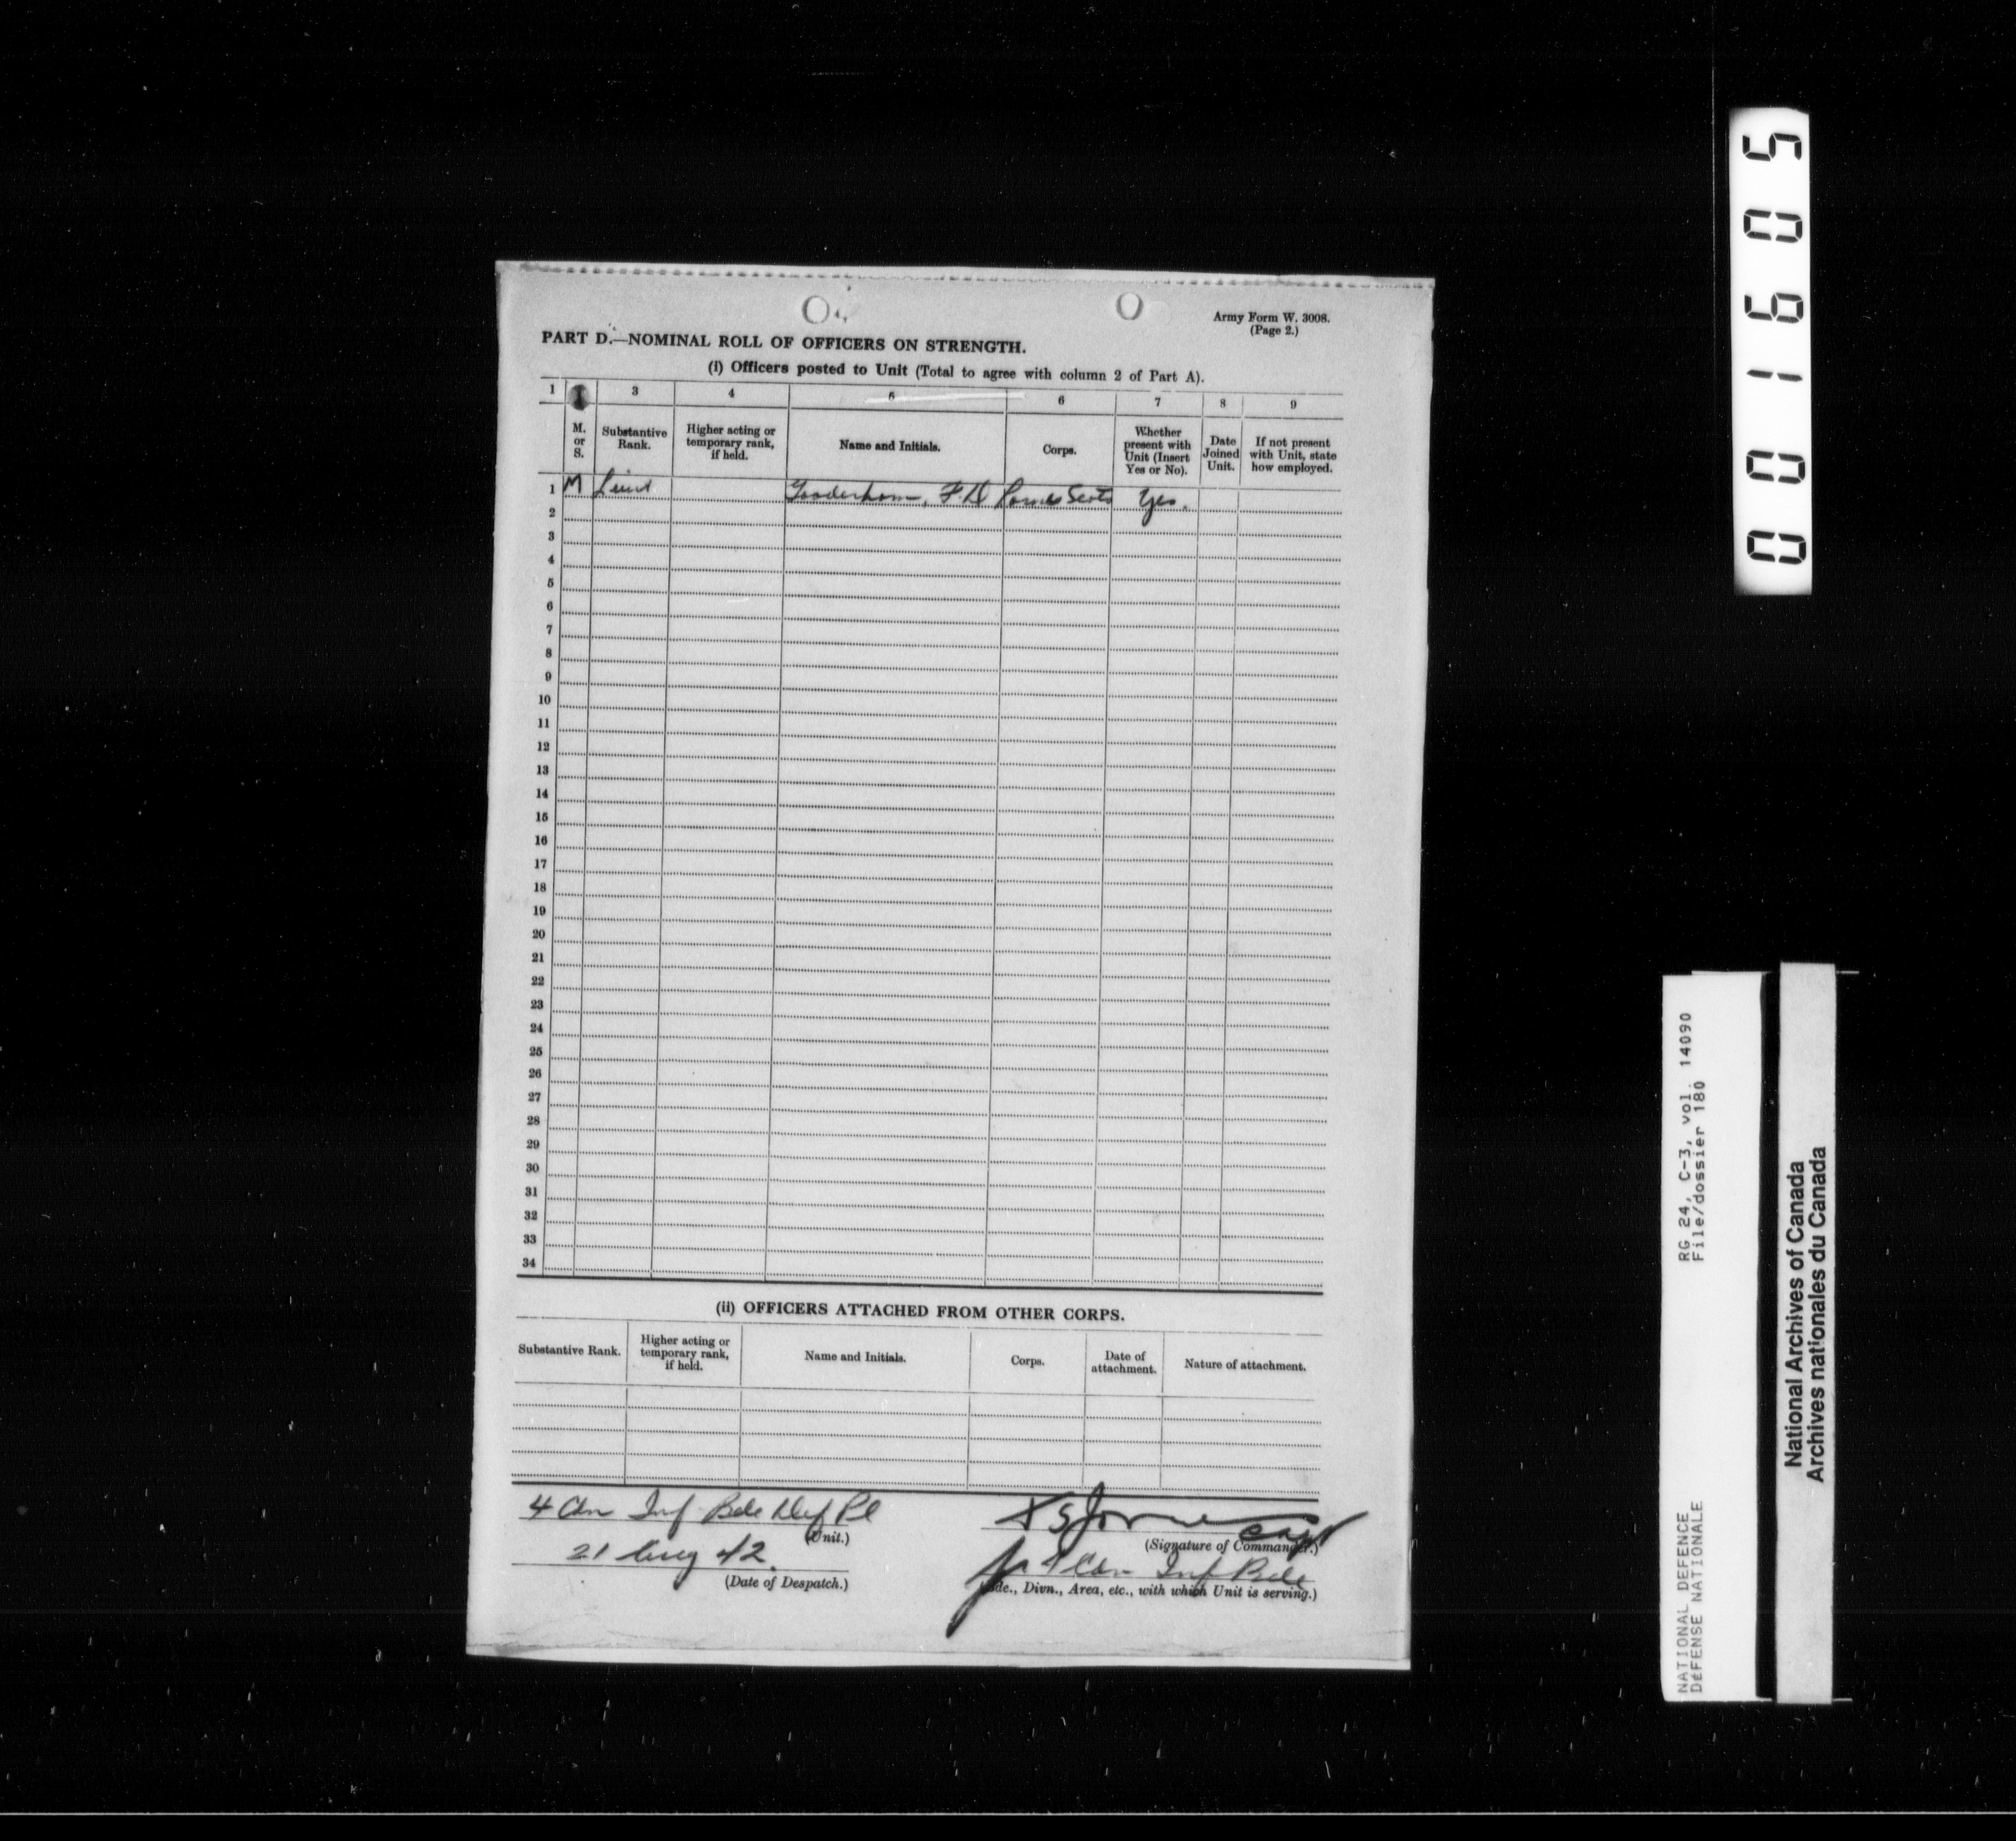 Army Form W. 3008.
(Page 2.)
PART D.—NOMINAL ROLL OF OFFICERS ON STRENGTH.
(i) Officers posted to Unit (Total to agree with column 2 of Part A).
1 3 4 5 6 7 8 9
M. or S. Substantive Rank. Higher acting or temporary rank, if held. Name and Initials. Corps. Whether present with Unit (Insert Yes or No). Date Joined Unit. If not present with Unit, state how employed.
1 M Lieut Gooderham, F.D Lorne Scots Yes.
2
3
4
5
6
7
8
9
10
11
12
13
14
15
16
17
18
19
20
21
22
23
24
25
26
27
28
29
30
31
32
33
34
(ii) OFFICERS ATTACHED FROM OTHER CORPS.
Substantive Rank. Higher acting or temporary rank, if held. Name and Initials. Corps. Date of attachment. Nature of attachment.
4 Cdn Inf Bde Def Pl Capt
(Unit.) (Signature of Commander.)
21 Aug 42. 4 Cdn Inf Bde
(Date of Despatch.) Bde., Divn., Area, etc., with which Unit is serving.)
001605
RG 24, C-3, vol. 14090
File/dossier 180
NATIONAL DEFENCE
DÉFENSE NATIONALE
National Archives of Canada
Archives nationales du Canada